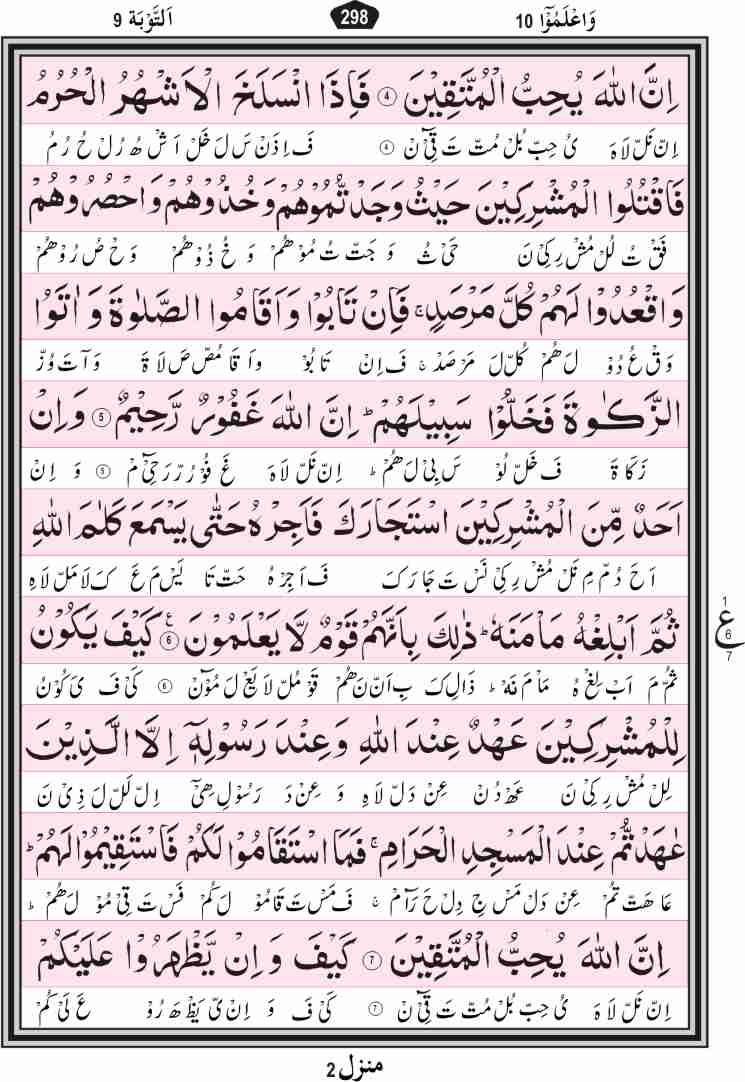 وَاعْلَمُوْۤا 10 298 اَلتَّوْبَة 9
اِنَّ اللّٰهَ يُحِبُّ الْمُتَّقِيْنَ ﴿4﴾ فَاِذَا انْسَلَخَ الْاَشْهُرُ الْحُرُمُ
اِنّ نَلّ لَا هَ يُ حِبّ بُلْ مُتّ تَ قِيْٓ نْ ﴿4﴾ فَ اِذَنْ سَ لَ خَلْ اَشْ هُ رُلْ حُ رُ مُ
فَاقْتُلُوا الْمُشْرِكِيْنَ حَيْثُ وَجَدْتُّمُوْهُمْ وَخُذُوْهُمْ وَاحْصُرُوْهُمْ
فَقْ تُ لُلْ مُشْ رِ كِيْ نَ حَيْ ثُ وَ جَتّ تُ مُوْ هُمْ وَ خُ ذُوْ هُمْ وَحْ صُ رُوْ هُمْ
وَاقْعُدُوْا لَهُمْ كُلَّ مَرْصَدٍۚ فَاِنْ تَابُوْا وَاَقَامُوا الصَّلٰوةَ وَاٰتَوُا
وَقْ عُ دُوْ لَ هُمْ كُلّ لَ مَرْ صَدْۚ فَ اِنْ تَا بُوْ وَ اَ قَا مُصّ صَ لَا ةَ وَ آ تَ وُزّ
الزَّكٰوةَ فَخَلُّوْا سَبِيْلَهُمْؕ اِنَّ اللّٰهَ غَفُوْرٌ رَّحِيْمٌ ﴿5﴾ وَاِنْ
زَ كَا ةَ فَ خَلّ لُوْ سَ بِيْ لَ هُمْؕ اِنّ نَلّ لَا هَ غَ فُوْ رُرّ رَ حِيْٓ مْ ﴿5﴾ وَ اِنْ
اَحَدٌ مِّنَ الْمُشْرِكِيْنَ اسْتَجَارَكَ فَاَجِرْهُ حَتّٰى يَسْمَعَ كَلٰمَ اللّٰهِ
اَ حَ دُمّ مِ نَلْ مُشْ رِ كِيْ نَسْ تَ جَا رَ كَ فَ اَ جِرْ هُ حَتّ تَا يَسْ مَ عَ كَ لَا مَلّ لَا هِ
ثُمَّ اَبْلِغْهُ مَاْمَنَهٗؕ ذٰلِكَ بِاَنَّهُمْ قَوْمٌ لَّا يَعْلَمُوْنَ ﴿6﴾ۧ كَيْفَ يَكُوْنُ
ثُمّ مَ اَبْ لِغْ هُ مَاْ مَ نَهْؕ ذَا لِ كَ بِ اَنّ نَ هُمْ قَوْ مُلّ لَا يَعْ لَ مُوْٓ نْ ﴿6﴾ كَيْ فَ يَ كُوْ نُ
1 ع 6 7
لِلْمُشْرِكِيْنَ عَهْدٌ عِنْدَ اللّٰهِ وَعِنْدَ رَسُوْلِهٖۤ اِلَّا الَّذِيْنَ
لِلْ مُشْ رِ كِيْ نَ عَهْ دُنْ عِنْ دَلّ لَا هِ وَ عِنْ دَ رَ سُوْ لِ هِيْٓ اِلّ لَلّ لَ ذِيْ نَ
عٰهَدْتُّمْ عِنْدَ الْمَسْجِدِ الْحَرَامِۚ فَمَا اسْتَقَامُوْا لَكُمْ فَاسْتَقِيْمُوْا لَهُمْؕ
عَا هَتّ تُمْ عِنْ دَلْ مَسْ جِ دِلْ حَ رَآ مْۚ فَ مَسْ تَ قَا مُوْ لَ كُمْ فَسْ تَ قِيْ مُوْ لَ هُمْؕ
اِنَّ اللّٰهَ يُحِبُّ الْمُتَّقِيْنَ ﴿7﴾ كَيْفَ وَاِنْ يَّظْهَرُوْا عَلَيْكُمْ
اِنّ نَلّ لَا هَ يُ حِبّ بُلْ مُتّ تَ قِيْٓ نْ ﴿7﴾ كَيْ فَ وَ اِنْ يّ يَظْ هَ رُوْ عَ لَيْ كُمْ
منزل 2